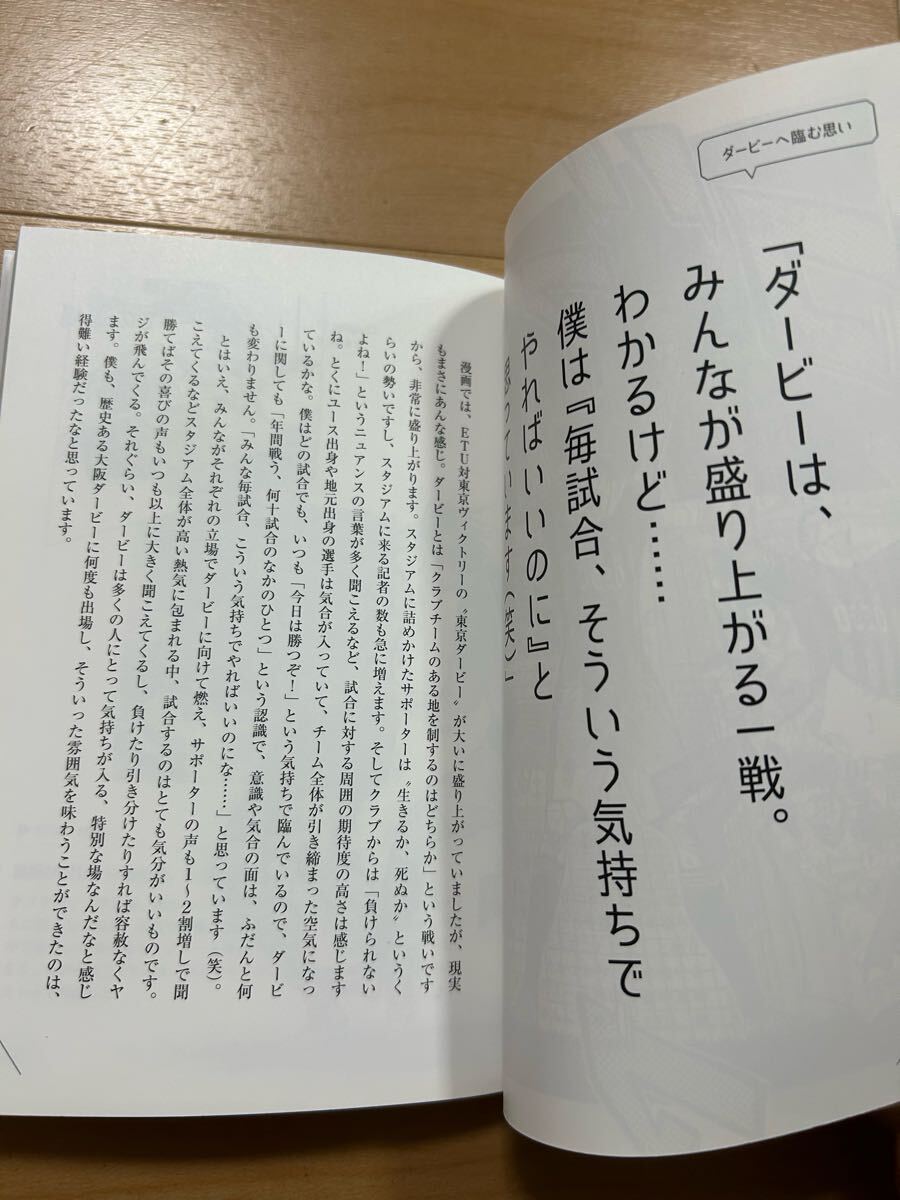 ダービーへ臨む思い
「ダービーは、
みんなが盛り上がる一戦。
わかるけど……
僕は『毎試合、そういう気持ちで
やればいいのに』と
思っています(笑)」
漫画では、ETU対東京ヴィクトリーの〝東京ダービー〟が大いに盛り上がっていましたが、現実
もまさにあんな感じ。ダービーとは「クラブチームのある地を制するのはどちらか」という戦いです
から、非常に盛り上がります。スタジアムに詰めかけたサポーターは〝生きるか、死ぬか〟というく
らいの勢いですし、スタジアムに来る記者の数も急に増えます。そしてクラブからは「負けられない
よね！」というニュアンスの言葉が多く聞こえるなど、試合に対する周囲の期待度の高さは感じます
ね。とくにユース出身や地元出身の選手は気合が入っていて、チーム全体が引き締まった空気になっ
ているかな。僕はどの試合でも、いつも「今日は勝つぞ！」という気持ちで臨んでいるので、ダービ
ーに関しても「年間戦う、何十試合のなかのひとつ」という認識で、意識や気合の面は、ふだんと何
も変わりません。「みんな毎試合、こういう気持ちでやればいいのにな……」と思っています(笑)。
とはいえ、みんながそれぞれの立場でダービーに向けて燃え、サポーターの声も1～2割増しで聞
こえてくるなどスタジアム全体が高い熱気に包まれる中、試合するのはとても気分がいいものです。
勝てばその喜びの声もいつも以上に大きく聞こえてくるし、負けたり引き分けたりすれば容赦なくヤ
ジが飛んでくる。それぐらい、ダービーは多くの人にとって気持ちが入る、特別な場なんだなと感じ
ます。僕も、歴史ある大阪ダービーに何度も出場し、そういった雰囲気を味わうことができたのは、
得難い経験だったなと思っています。